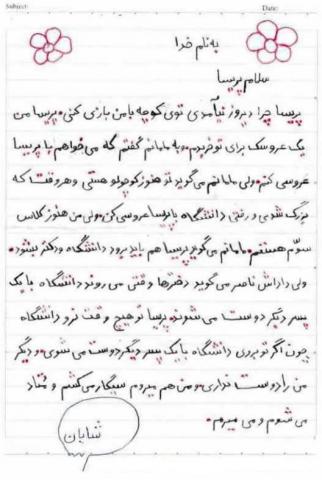 Subject:
Date:
به نام خدا
سلام پریسا
پریسا چرا دیروز نیآمدی توی کوچه با من بازی کنی. پریسا من
یک عروسک برای تو خریدم. و به مامانم گفتم که می‌خواهم با پریسا
عروسی کنم. ولی مامانم می‌گوید تو هنوز کوچولو هستی و هر وقت که
بزرگ شدی و رفتی دانشگاه با پریسا عروسی کن. ولی من هنوز کلاس
سوّم هستم. مامانم می‌گوید پریسا هم باید برود دانشگاه و دکتر بشود.
ولی داداش ناصر می‌گوید دخترها وقتی می‌روند دانشگاه با یک
پسر دیگر دوست می‌شوند. پریسا تو هیچ وقت نرو دانشگاه
چون اگر تو بروی دانشگاه با یک پسر دیگر دوست می‌شوی. و دیگر
من را دوست نداری. و من هم میروم سیگار می‌کشم و مُتاد
می‌شوم و می‌میرم.
شایان